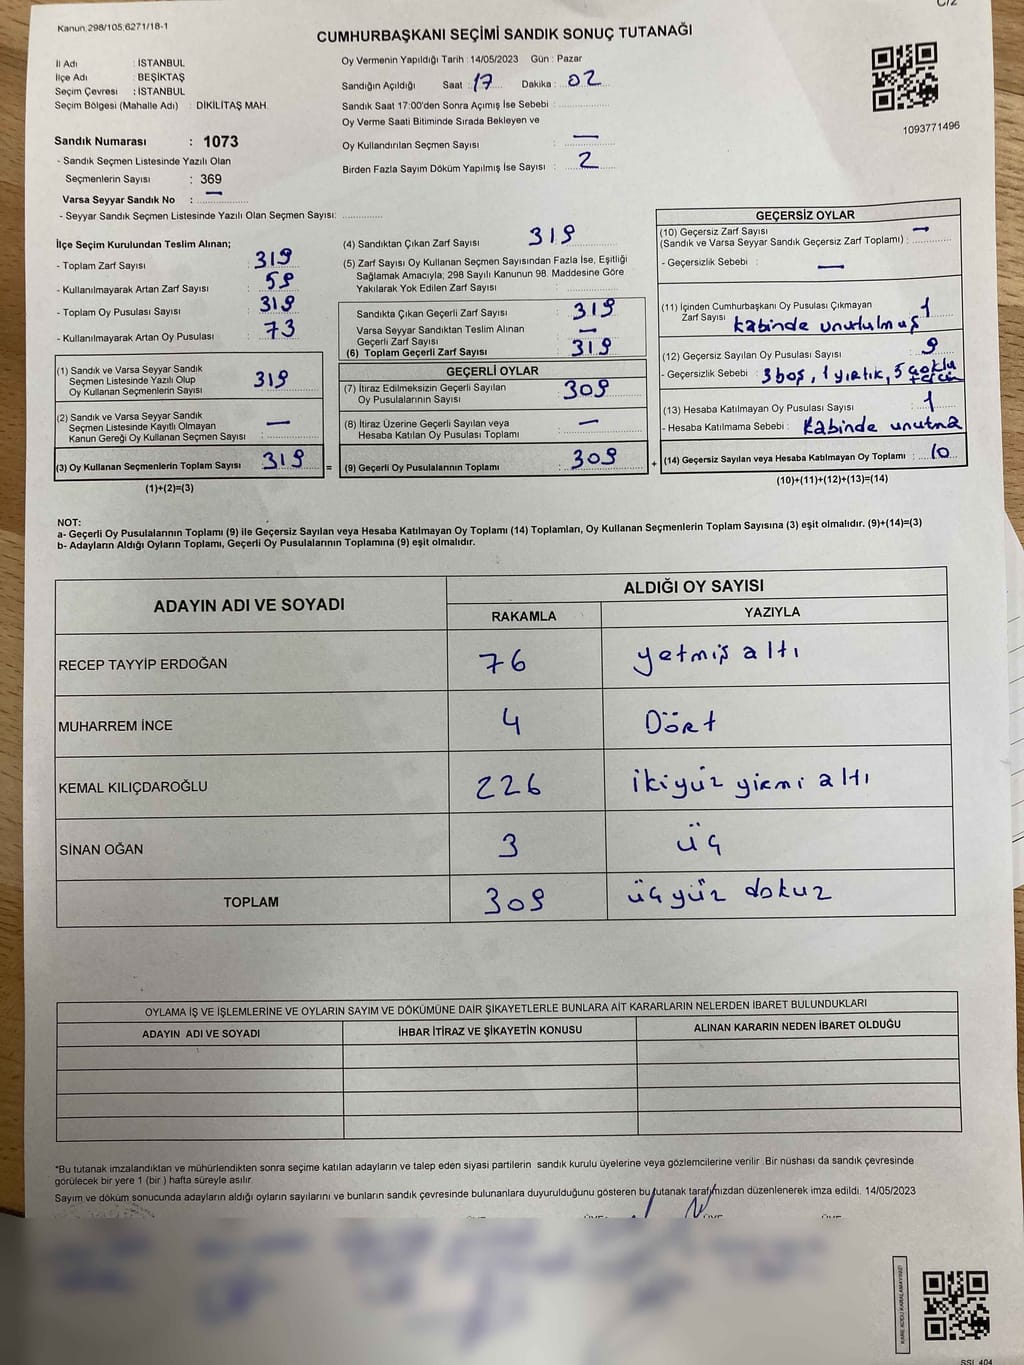 C/2
Kanun 298/105,6271/18-1
CUMHURBAŞKANI SEÇİMİ SANDIK SONUÇ TUTANAĞI
İl Adı : İSTANBUL
İlçe Adı : BEŞİKTAŞ
Seçim Çevresi : İSTANBUL
Seçim Bölgesi (Mahalle Adı) : DİKİLİTAŞ MAH.
Oy Vermenin Yapıldığı Tarih : 14/05/2023 Gün : Pazar
Sandığın Açıldığı Saat : 17 Dakika : 02
Sandık Saat 17:00'den Sonra Açımış İse Sebebi :
Oy Verme Saati Bitiminde Sırada Bekleyen ve
Oy Kullandırılan Seçmen Sayısı : —
Birden Fazla Sayım Döküm Yapılmış İse Sayısı : 2
1093771496
Sandık Numarası : 1073
- Sandık Seçmen Listesinde Yazılı Olan
Seçmenlerin Sayısı : 369
Varsa Seyyar Sandık No : —
- Seyyar Sandık Seçmen Listesinde Yazılı Olan Seçmen Sayısı:
İlçe Seçim Kurulundan Teslim Alınan;
- Toplam Zarf Sayısı : 319
- Kullanılmayarak Artan Zarf Sayısı : 59
- Toplam Oy Pusulası Sayısı : 319
- Kullanılmayarak Artan Oy Pusulası : 73
(1) Sandık ve Varsa Seyyar Sandık
Seçmen Listesinde Yazılı Olup
Oy Kullanan Seçmenlerin Sayısı : 319
(2) Sandık ve Varsa Seyyar Sandık
Seçmen Listesinde Kayıtlı Olmayan
Kanun Gereği Oy Kullanan Seçmen Sayısı : —
(3) Oy Kullanan Seçmenlerin Toplam Sayısı : 319 =
(1)+(2)=(3)
(4) Sandıktan Çıkan Zarf Sayısı : 319
(5) Zarf Sayısı Oy Kullanan Seçmen Sayısından Fazla İse, Eşitliği
Sağlamak Amacıyla; 298 Sayılı Kanunun 98. Maddesine Göre
Yakılarak Yok Edilen Zarf Sayısı :
Sandıkta Çıkan Geçerli Zarf Sayısı : 319
Varsa Seyyar Sandıktan Teslim Alınan
Geçerli Zarf Sayısı : —
(6) Toplam Geçerli Zarf Sayısı : 319
GEÇERLİ OYLAR
(7) İtiraz Edilmeksizin Geçerli Sayılan
Oy Pusulalarının Sayısı : 309
(8) İtiraz Üzerine Geçerli Sayılan veya
Hesaba Katılan Oy Pusulası Toplamı : —
(9) Geçerli Oy Pusulalarının Toplamı : 309 +
GEÇERSİZ OYLAR
(10) Geçersiz Zarf Sayısı —
(Sandık ve Varsa Seyyar Sandık Geçersiz Zarf Toplamı) :
- Geçersizlik Sebebi : —
(11) İçinden Cumhurbaşkanı Oy Pusulası Çıkmayan
Zarf Sayısı : 1
kabinde unutulmuş
(12) Geçersiz Sayılan Oy Pusulası Sayısı : 9
- Geçersizlik Sebebi : 3 boş, 1 yırtık, 5 çoklu
tercih
(13) Hesaba Katılmayan Oy Pusulası Sayısı : 1
- Hesaba Katılmama Sebebi : Kabinde unutma
(14) Geçersiz Sayılan veya Hesaba Katılmayan Oy Toplamı : 10
(10)+(11)+(12)+(13)=(14)
NOT:
a- Geçerli Oy Pusulalarının Toplamı (9) ile Geçersiz Sayılan veya Hesaba Katılmayan Oy Toplamı (14) Toplamları, Oy Kullanan Seçmenlerin Toplam Sayısına (3) eşit olmalıdır. (9)+(14)=(3)
b- Adayların Aldığı Oyların Toplamı, Geçerli Oy Pusulalarının Toplamına (9) eşit olmalıdır.
ADAYIN ADI VE SOYADI
ALDIĞI OY SAYISI
RAKAMLA YAZIYLA
RECEP TAYYİP ERDOĞAN 76 yetmiş altı
MUHARREM İNCE 4 Dört
KEMAL KILIÇDAROĞLU 226 ikiyüz yirmi altı
SİNAN OĞAN 3 üç
TOPLAM 309 üçyüz dokuz
OYLAMA İŞ VE İŞLEMLERİNE VE OYLARIN SAYIM VE DÖKÜMÜNE DAİR ŞİKAYETLERLE BUNLARA AİT KARARLARIN NELERDEN İBARET BULUNDUKLARI
ADAYIN ADI VE SOYADI
İHBAR İTİRAZ VE ŞİKAYETİN KONUSU
ALINAN KARARIN NEDEN İBARET OLDUĞU
*Bu tutanak imzalandıktan ve mühürlendikten sonra seçime katılan adayların ve talep eden siyasi partilerin sandık kurulu üyelerine veya gözlemcilerine verilir .Bir nüshası da sandık çevresinde
görülecek bir yere 1 (bir ) hafta süreyle asılır.
Sayım ve döküm sonucunda adayların aldığı oyların sayılarını ve bunların sandık çevresinde bulunanlara duyurulduğunu gösteren bu tutanak tarafımızdan düzenlenerek imza edildi. 14/05/2023
KARE KODU KARALAMAYINIZ!